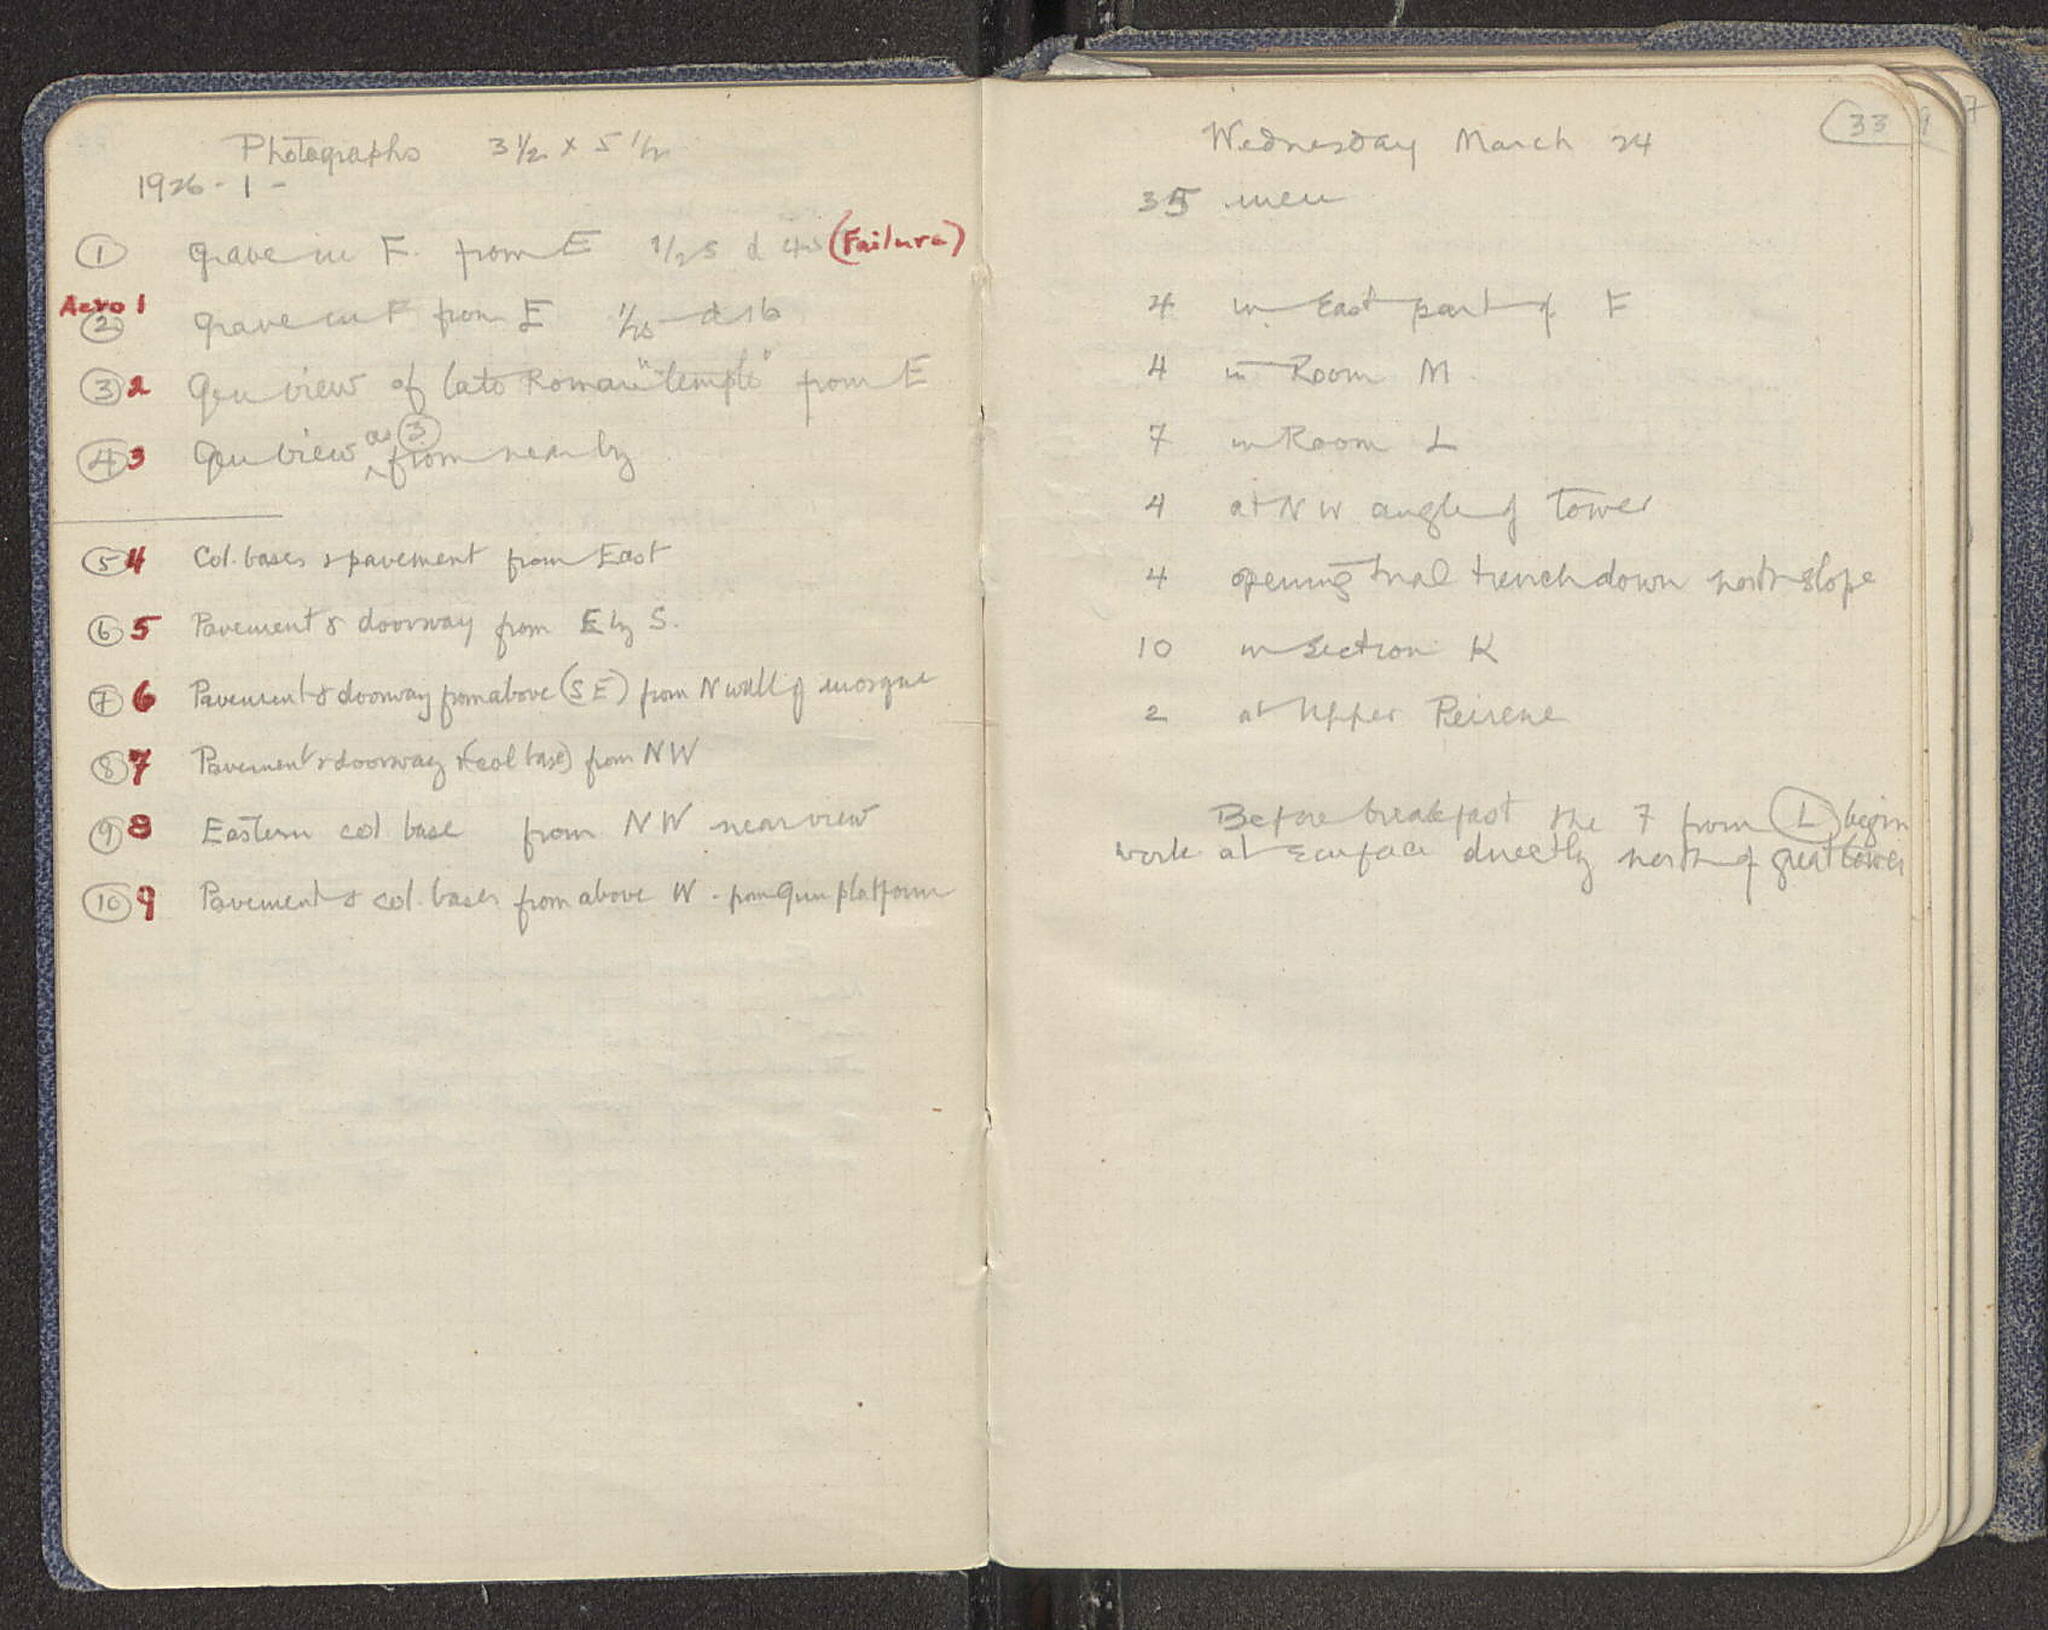 Photographs 3 1/2 x 5 1/2
1926 - 1 -
① Grave in F. from E 1/25 d (Failure)
Aero 1
② Grave in F from E 1/25 d 16
③ 2 Gen view of late Roman "temple" from E
④ 3 Gen view as ③ from near by
⑤ 4 Col. bases & pavement from East
⑥ 5 Pavement & doorway from E by S.
⑦ 6 Pavement & doorway from above (SE) from N wall of mosque
⑧ 7 Pavement & doorway & (col base) from NW
⑨ 8 Eastern col base from NW near view
⑩ 9 Pavement & col. bases from above W. from Gun platform
33
Wednesday March 24
35 men
4 in East part of F
4 in Room M
7 in Room L
4 at NW angle of Tower
4 opening trial trench down north slope
10 in Section K
2 at Upper Peirene
Before breakfast the 7 from Ⓛ begin
work at surface directly north of great tower